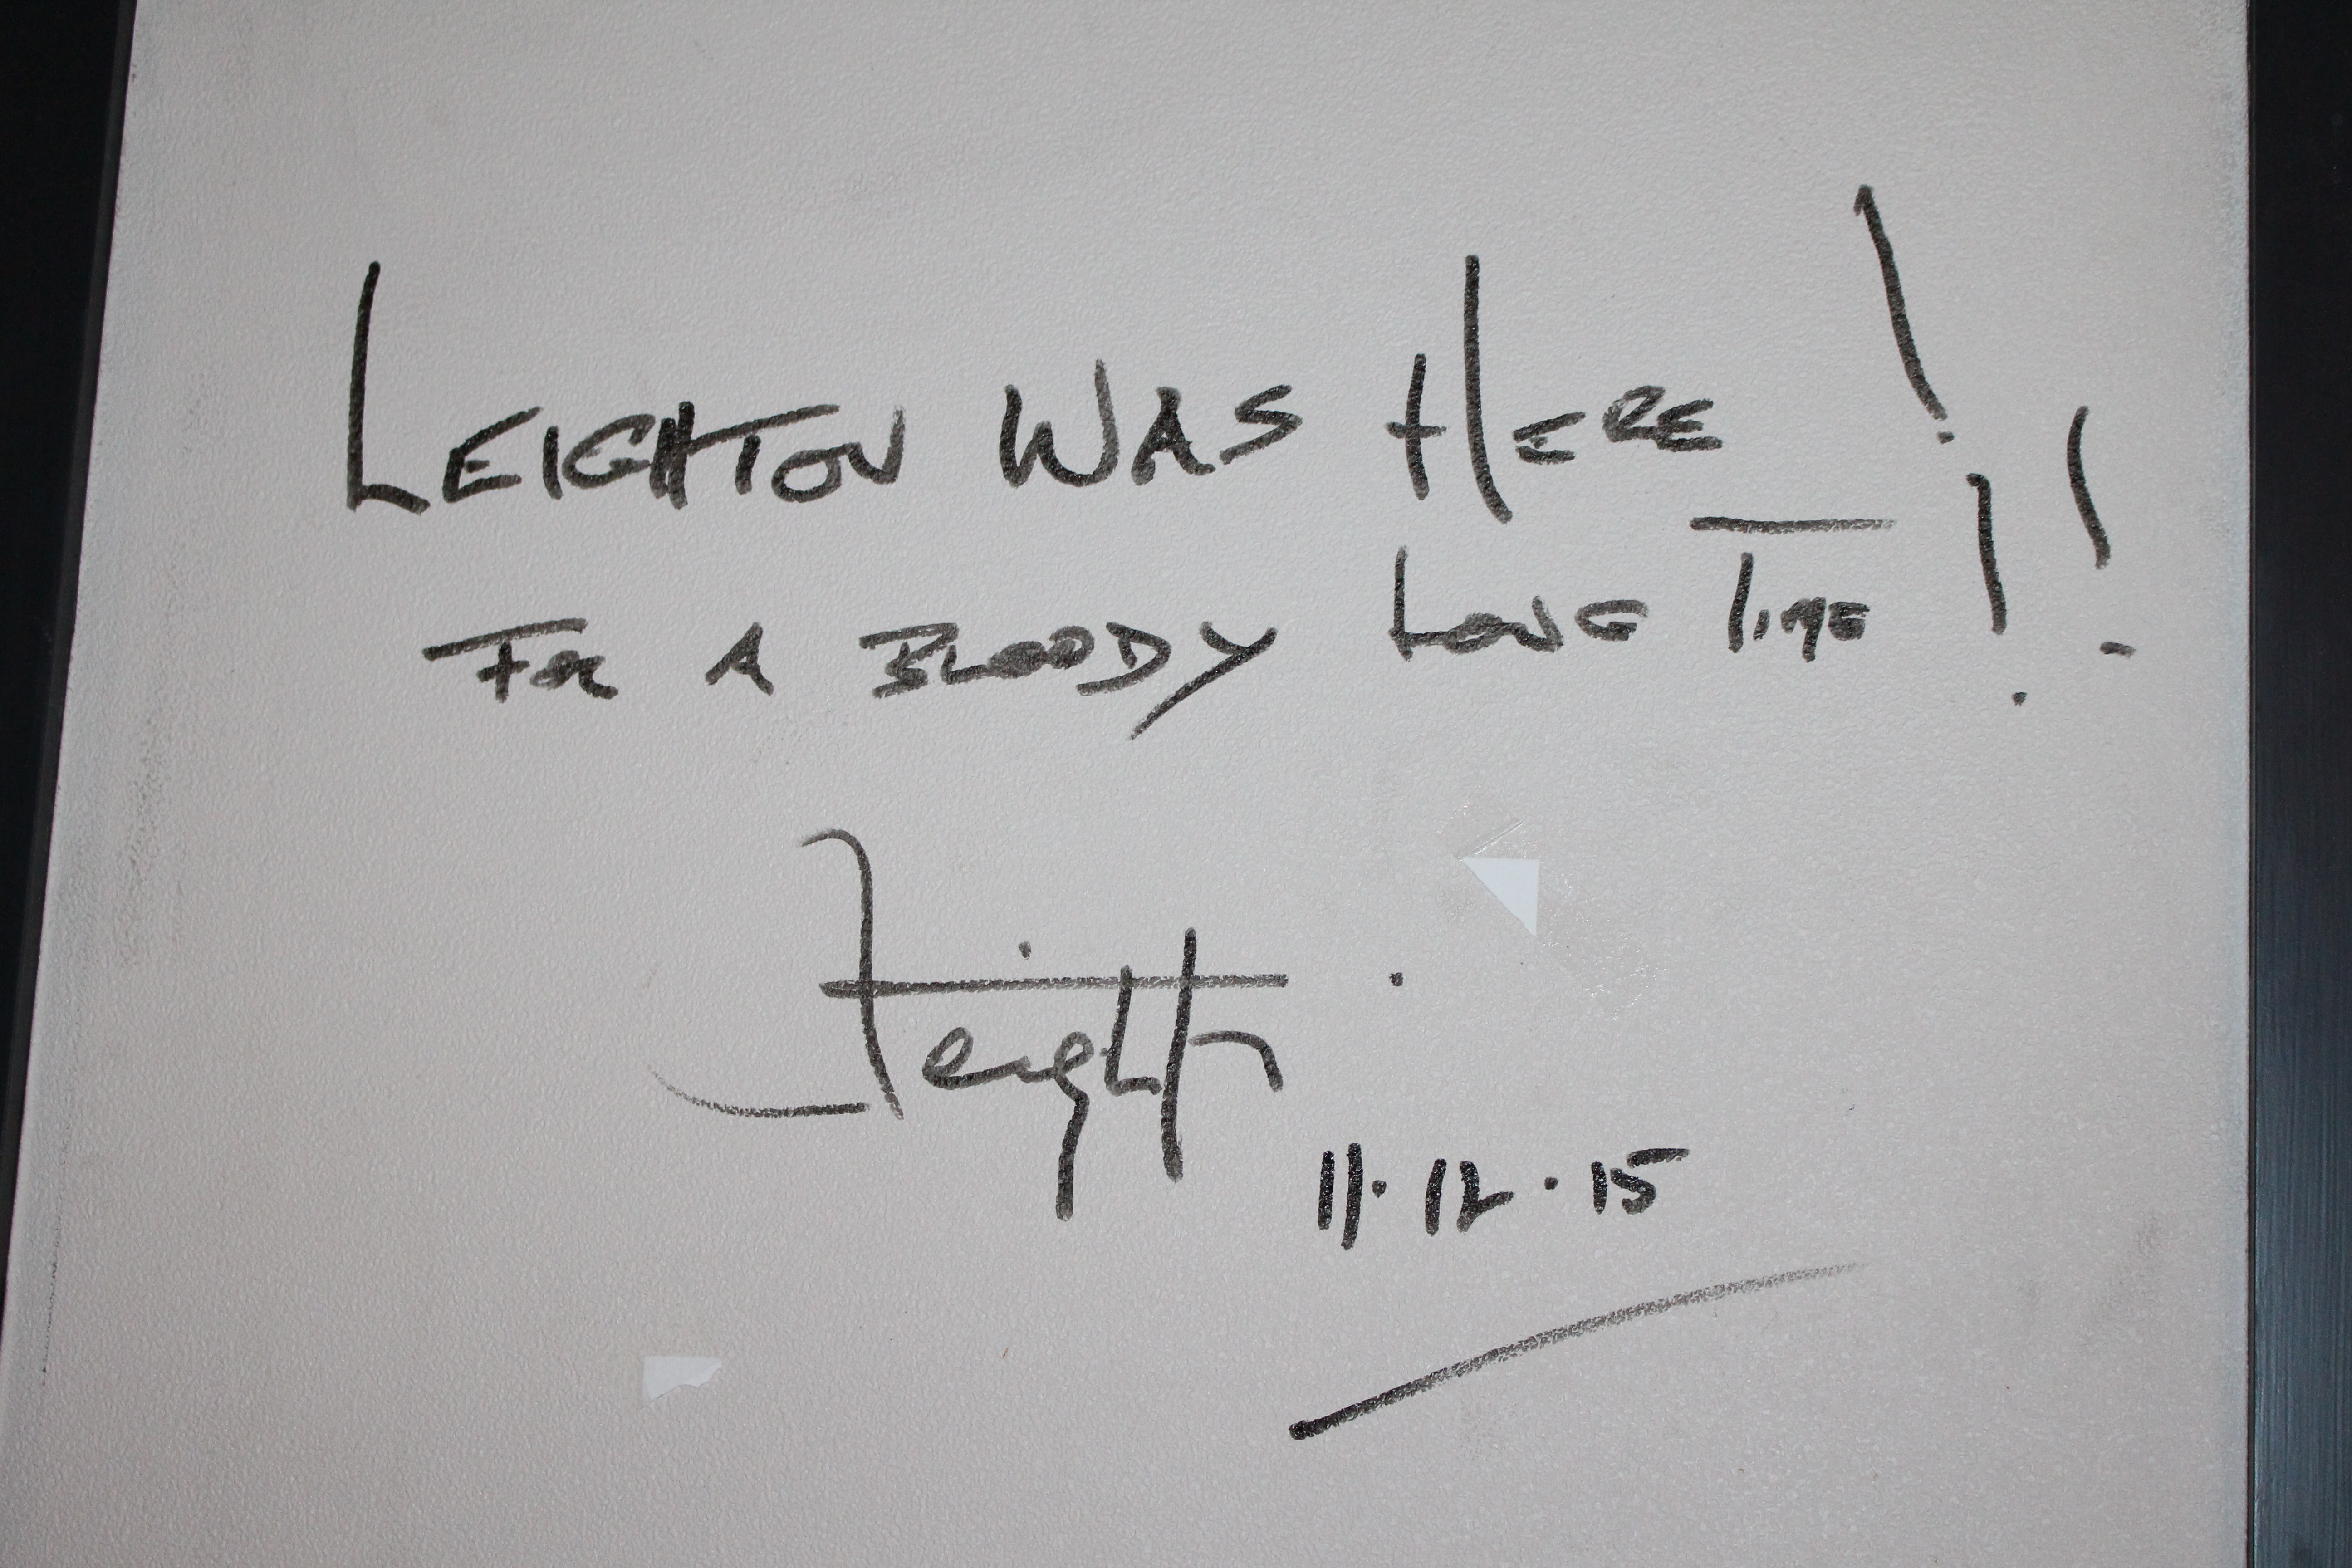 LEIGHTON WAS HERE !
FOR A BLOODY LONG TIME !!
Leighton
11.12.15